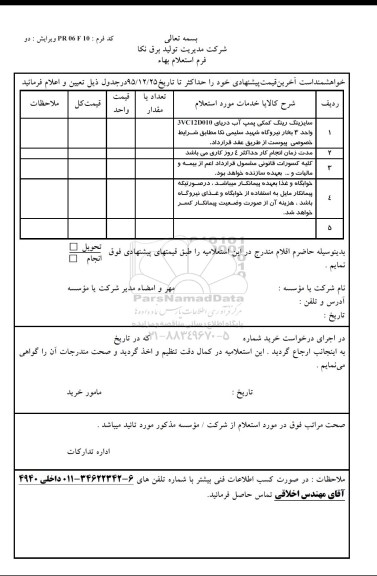 بسمه تعالی
کد فرم : PR 06 F 10 ویرایش : دو
شرکت مدیریت تولید برق نکا
فرم استعلام بهاء
خواهشمنداست آخرین قیمت پیشنهادی خود را حداکثر تا تاریخ ۹۵/۱۲/۲۵ درجدول ذیل تعیین و اعلام فرمائید
ردیف
شرح کالایا خدمات مورد استعلام
تعداد یا مقدار
قیمت واحد
قیمت کل
ملاحظات
۱
سایزینگ رینگ کمکی پمپ آب دریای 3VC12D010
واحد ۳ بخار نیروگاه شهید سلیمی نکا مطابق شرایط
خصوصی پیوست از طریق عقد قرارداد.
۲
مدت زمان انجام کار حداکثر ٤ روز کاری می باشد
۳
کلیه کسورات قانونی مشمول قرارداد اعم از بیمه و
مالیات و ... بعهده سازنده خواهد بود.
٤
خوابگاه و غذا بعهده پیمانکار میباشد ، درصورتیکه
پیمانکار مایل به استفاده از خوابگاه و غذای نیروگاه
باشد ، هزینه آن از صورت وضعیت پیمانکار کسر
خواهد شد.
۵
بدینوسیله حاضرم اقلام مندرج در این استعلامیه را طبق قیمتهای پیشنهادی فوق تحویل انجام
نمایم .
نام شرکت یا مؤسسه :
مهر و امضاء مدیر شرکت یا مؤسسه
آدرس و تلفن :
تاریخ :
ParsNamadData
۰۲۱-۸۸۳٤۹۶۷۰-۵
در اجرای درخواست خرید شماره که در تاریخ
به اینجانب ارجاع گردید . این استعلامیه در کمال دقت تنظیم و اخذ گردید و صحت مندرجات آن را گواهی
می‌نمایم .
تاریخ :
مامور خرید
صحت مراتب فوق در مورد استعلام از شرکت / مؤسسه مذکور مورد تائید میباشد .
اداره تدارکات
ملاحظات : در صورت کسب اطلاعات فنی بیشتر با شماره تلفن های ۶-۳۴۶۲۲۳۴۲-۰۱۱ داخلی ۴۹۴۰
آقای مهندس اخلاقی تماس حاصل فرمائید.